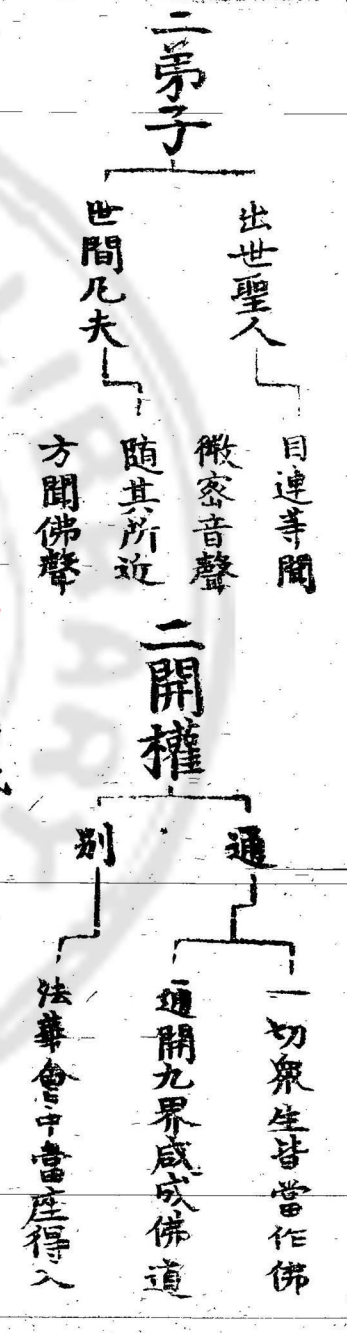 二弟子
出世聖人
目連等聞
微密音聲
世間凡夫
随其所近
方聞佛聲
二開權
通
一切衆生皆當作佛
通開九界咸成佛道
别
法華會中當座得入